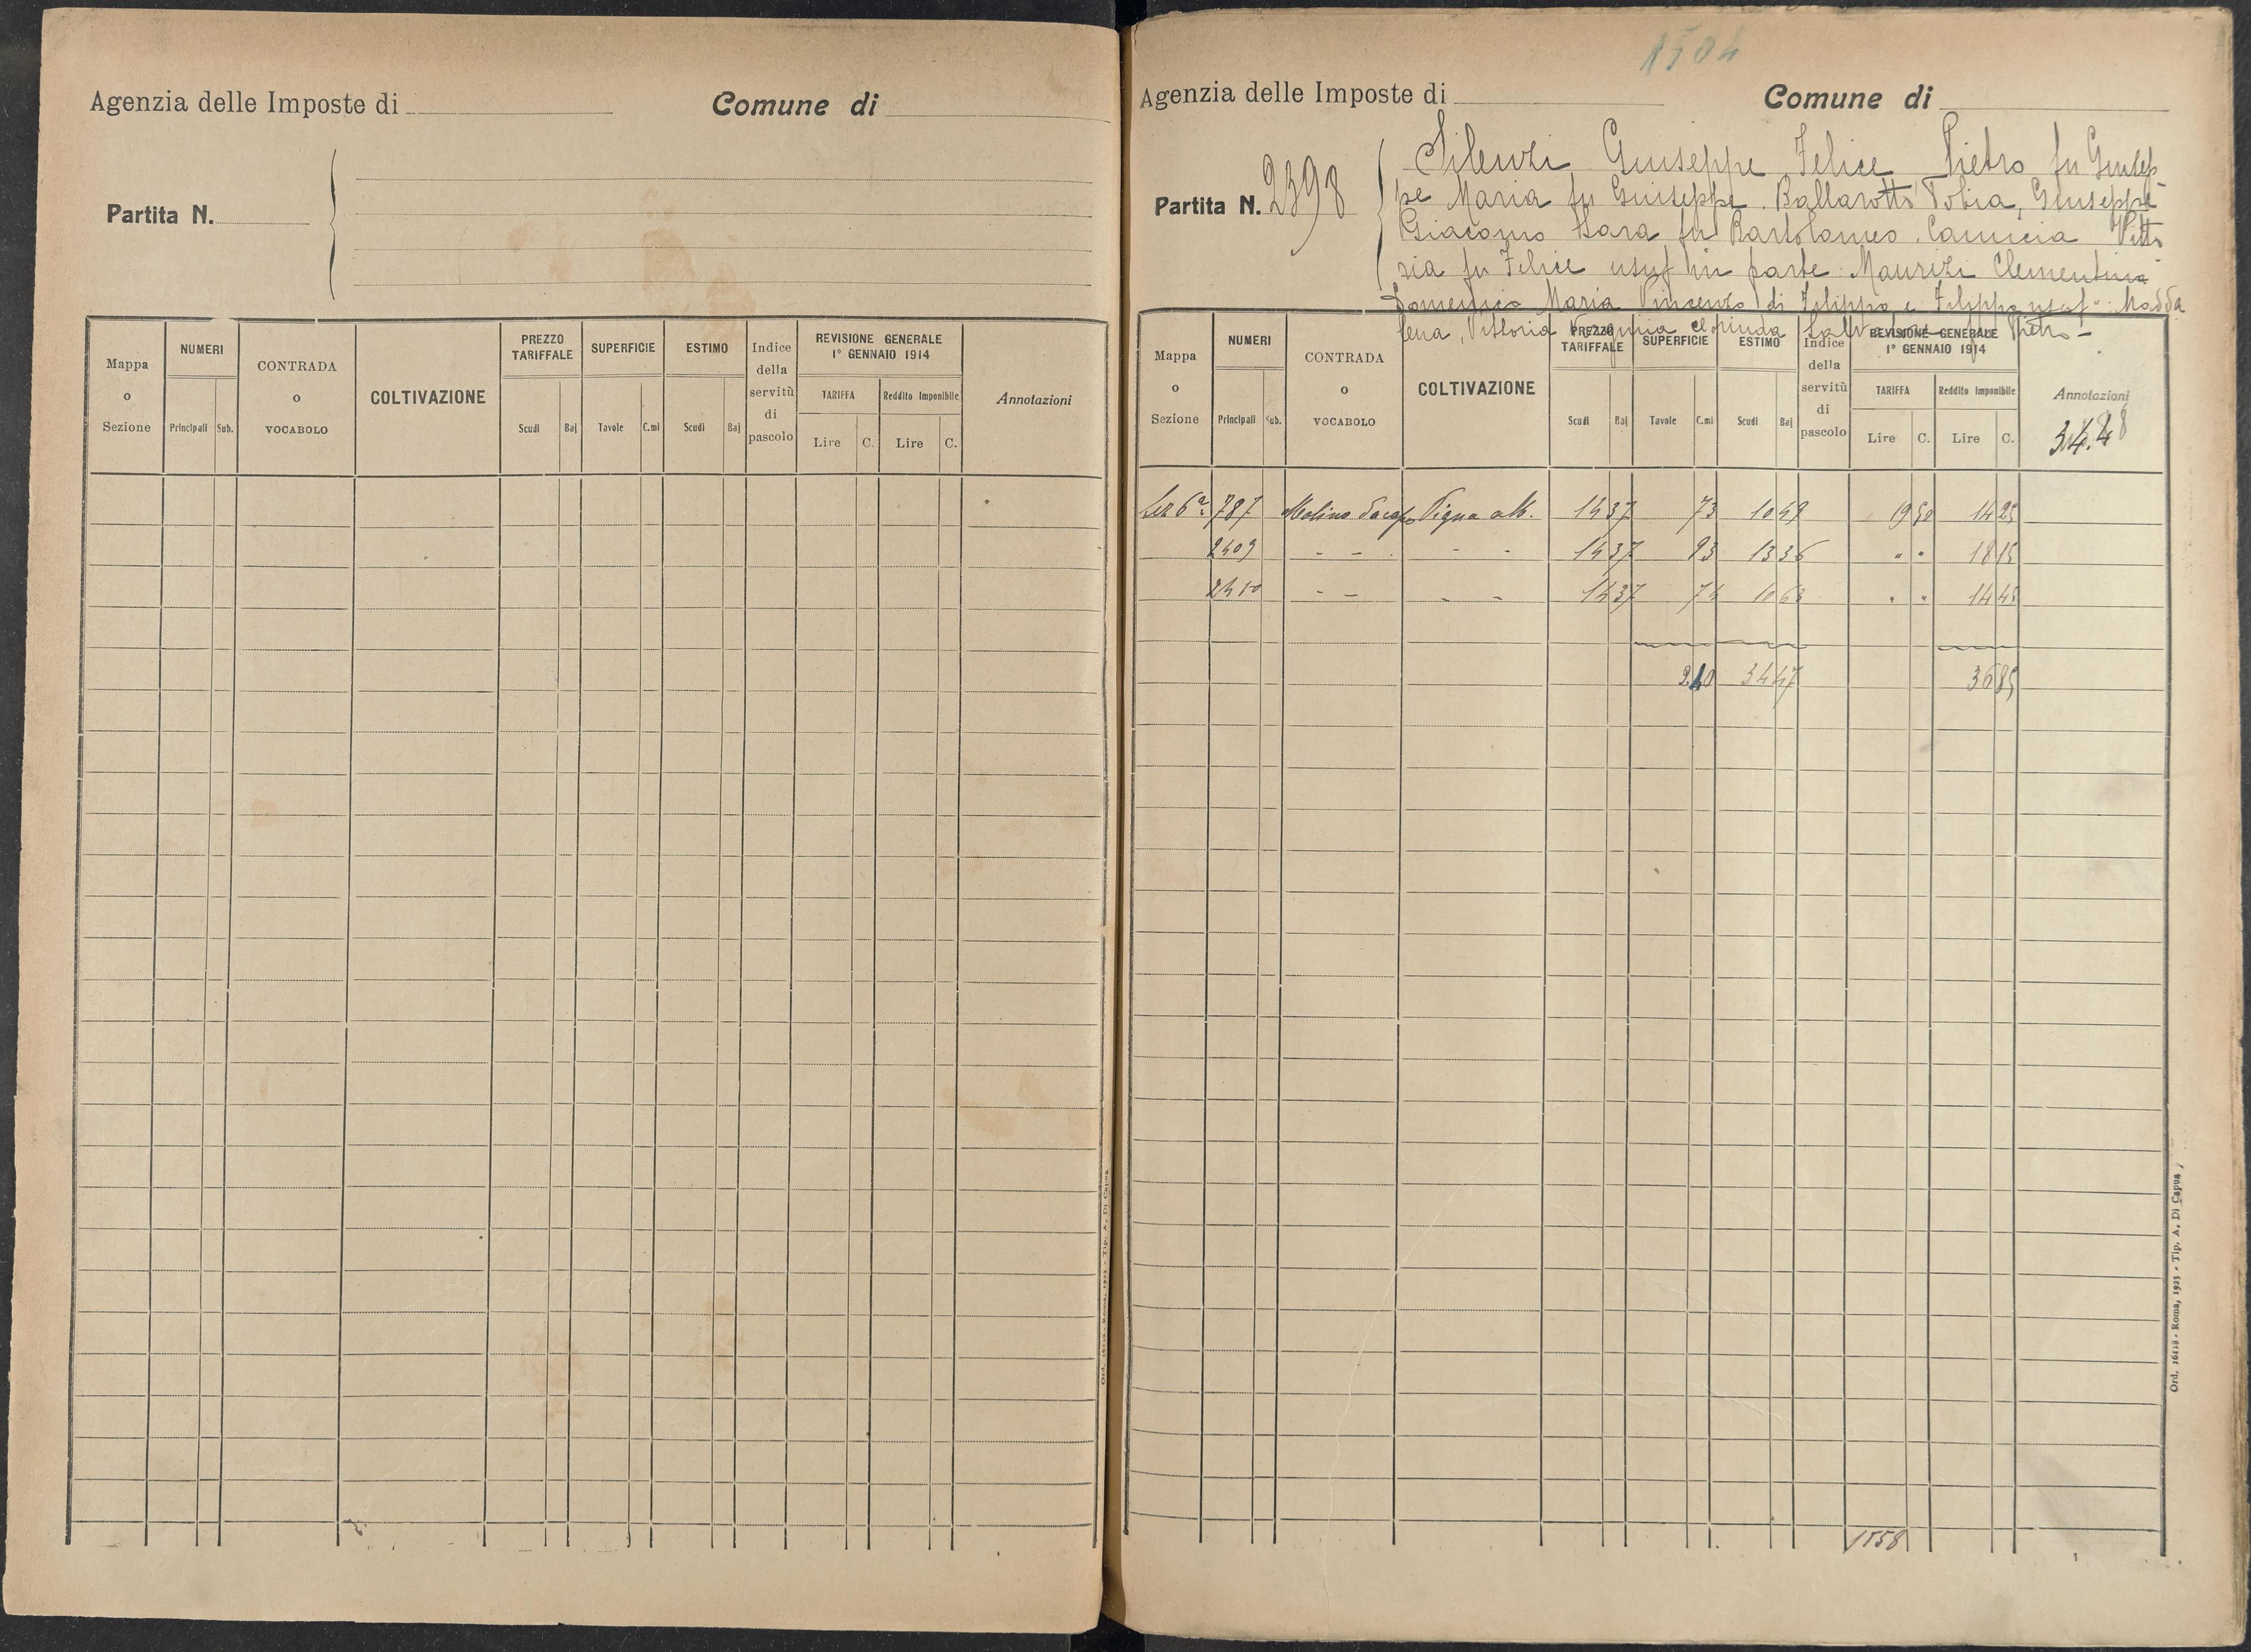 Agenzia delle Imposte di
Comune di
Partita N.
Mappa o Sezione
NUMERI
Principali
Sub.
CONTRADA o VOCABOLO
COLTIVAZIONE
PREZZO TARIFFALE
Scudi
Baj
SUPERFICIE
Tavole
C.mi
ESTIMO
Scudi
Baj
Indice della servitù di pascolo
REVISIONE GENERALE
1° GENNAIO 1914
TARIFFA
Lire
C.
Reddito Imponibile
Lire
C.
Annotazioni
1504
Agenzia delle Imposte di
Comune di
Partita N. 2398
Silenzi Giuseppe Felice Pietro fu Giusep-
pe Maria fu Giuseppe. Ballarotti Tobia, Giuseppe
Giacomo Sara fu Bartolomeo. Camicia Vitto
ria fu Felice usuf in parte Maurizi Clementina
Domenico Maria Vincenzo di Filippo e Filippo usuf. Madda
lena, Vittoria Virginia Clorinda Pietro -
Mappa o Sezione
NUMERI
Principali
Sub.
CONTRADA o VOCABOLO
COLTIVAZIONE
PREZZO TARIFFALE
Scudi
Baj
SUPERFICIE
Tavole
C.mi
ESTIMO
Scudi
Baj
Indice della servitù di pascolo
REVISIONE GENERALE
1° GENNAIO 1914
TARIFFA
Lire
C.
Reddito Imponibile
Lire
C.
Annotazioni
34.48
Sez 6a 787 Molino Vigna alb. 14 37 73 10 49 19 50 14 25
2409 - - - - 14 37 93 13 36 " " 18 15
2410 - - - - 14 37 74 10 63 " " 14 45
2 40 34 47 36 85
1558
Ord. 16118 - Roma, 1923 - Tip. A. Di Capua